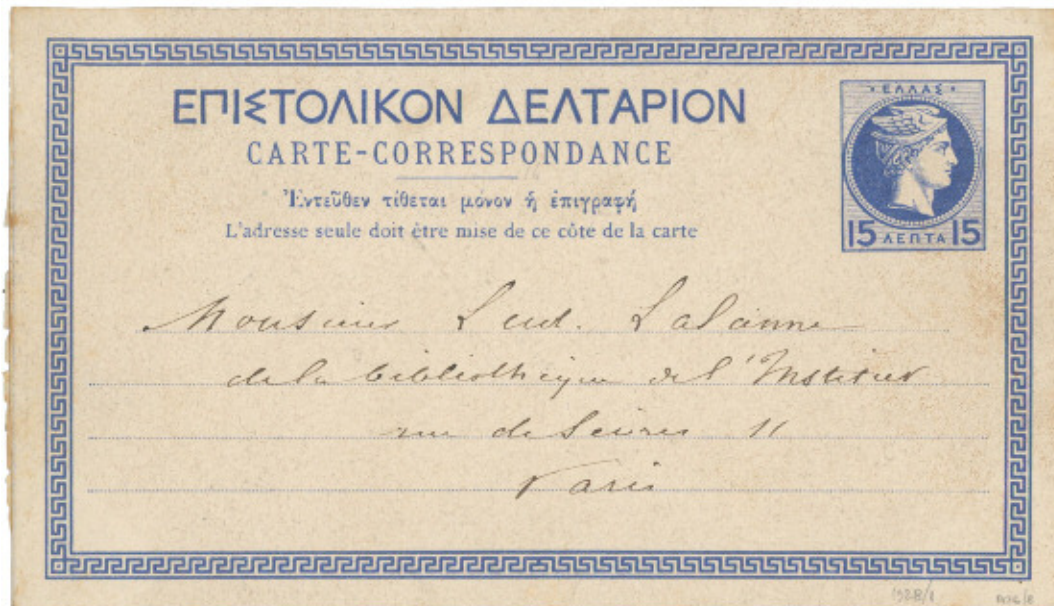 ΕΠΙΣΤΟΛΙΚΟΝ ΔΕΛΤΑΡΙΟΝ
CARTE-CORRESPONDANCE
Ἐντεῦθεν τίθεται μόνον ἡ ἐπιγραφή
L'adresse seule doit être mise de ce côte de la carte
·ΕΛΛΑΣ·
15 ΛΕΠΤΑ 15
Monsieur Lud. Lalanne
de la bibliothèque de l'Institut
rue de Sèvres 11
Paris
1928/1